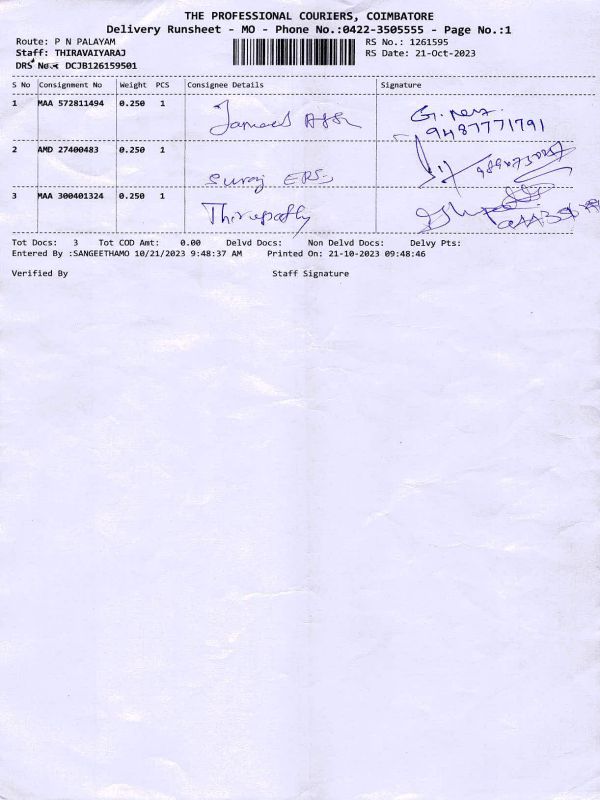 THE PROFESSIONAL COURIERS, COIMBATORE
Delivery Runsheet - MO - Phone No.:0422-3505555 - Page No.:1
Route: P N PALAYAM
RS No.: 1261595
Staff: THIRAVAIYARAJ
RS Date: 21-Oct-2023
DRS No.: DCJB126159501
S No Consignment No Weight PCS Consignee Details Signature
1 MAA 572811494 0.250 1
9487771791
2 AMD 27400483 0.250 1 Suraj
3 MAA 300401324 0.250 1 Thirupathy
Tot Docs: 3 Tot COD Amt: 0.00 Delvd Docs: Non Delvd Docs: Delvy Pts:
Entered By :SANGEETHAMO 10/21/2023 9:48:37 AM Printed On: 21-10-2023 09:48:46
Verified By Staff Signature